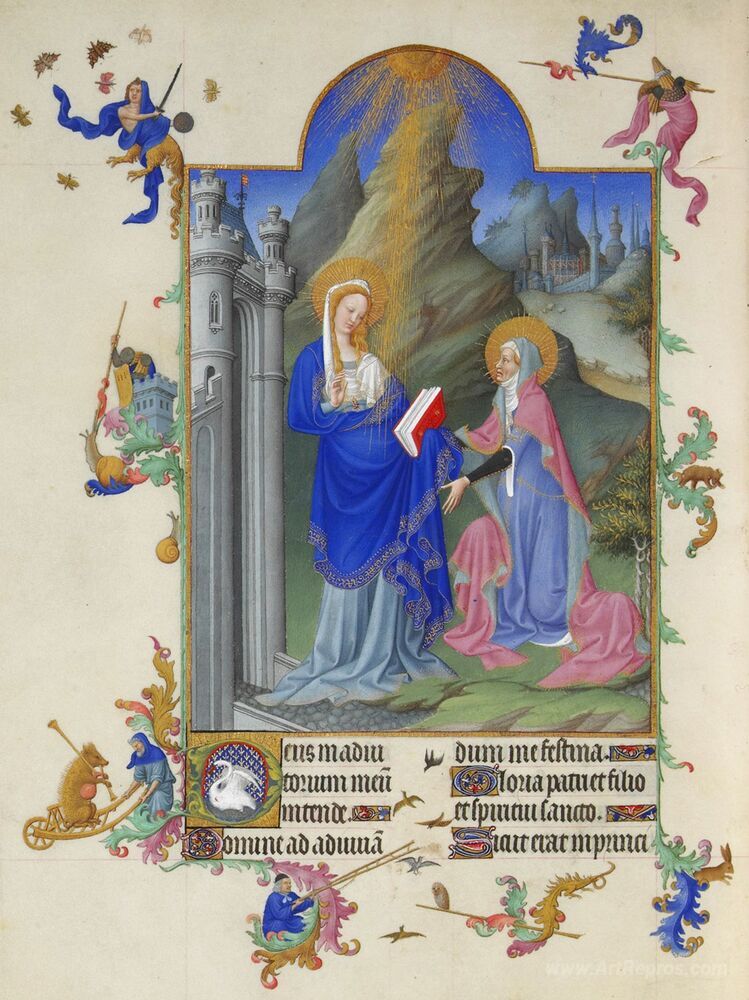 Deus in adiu
torium meū
intende.
Domine ad adiuuā
dum me festina.
Gloria patri et filio
et spiritui sancto.
Sicut erat in princi
www.ArtRepros.com